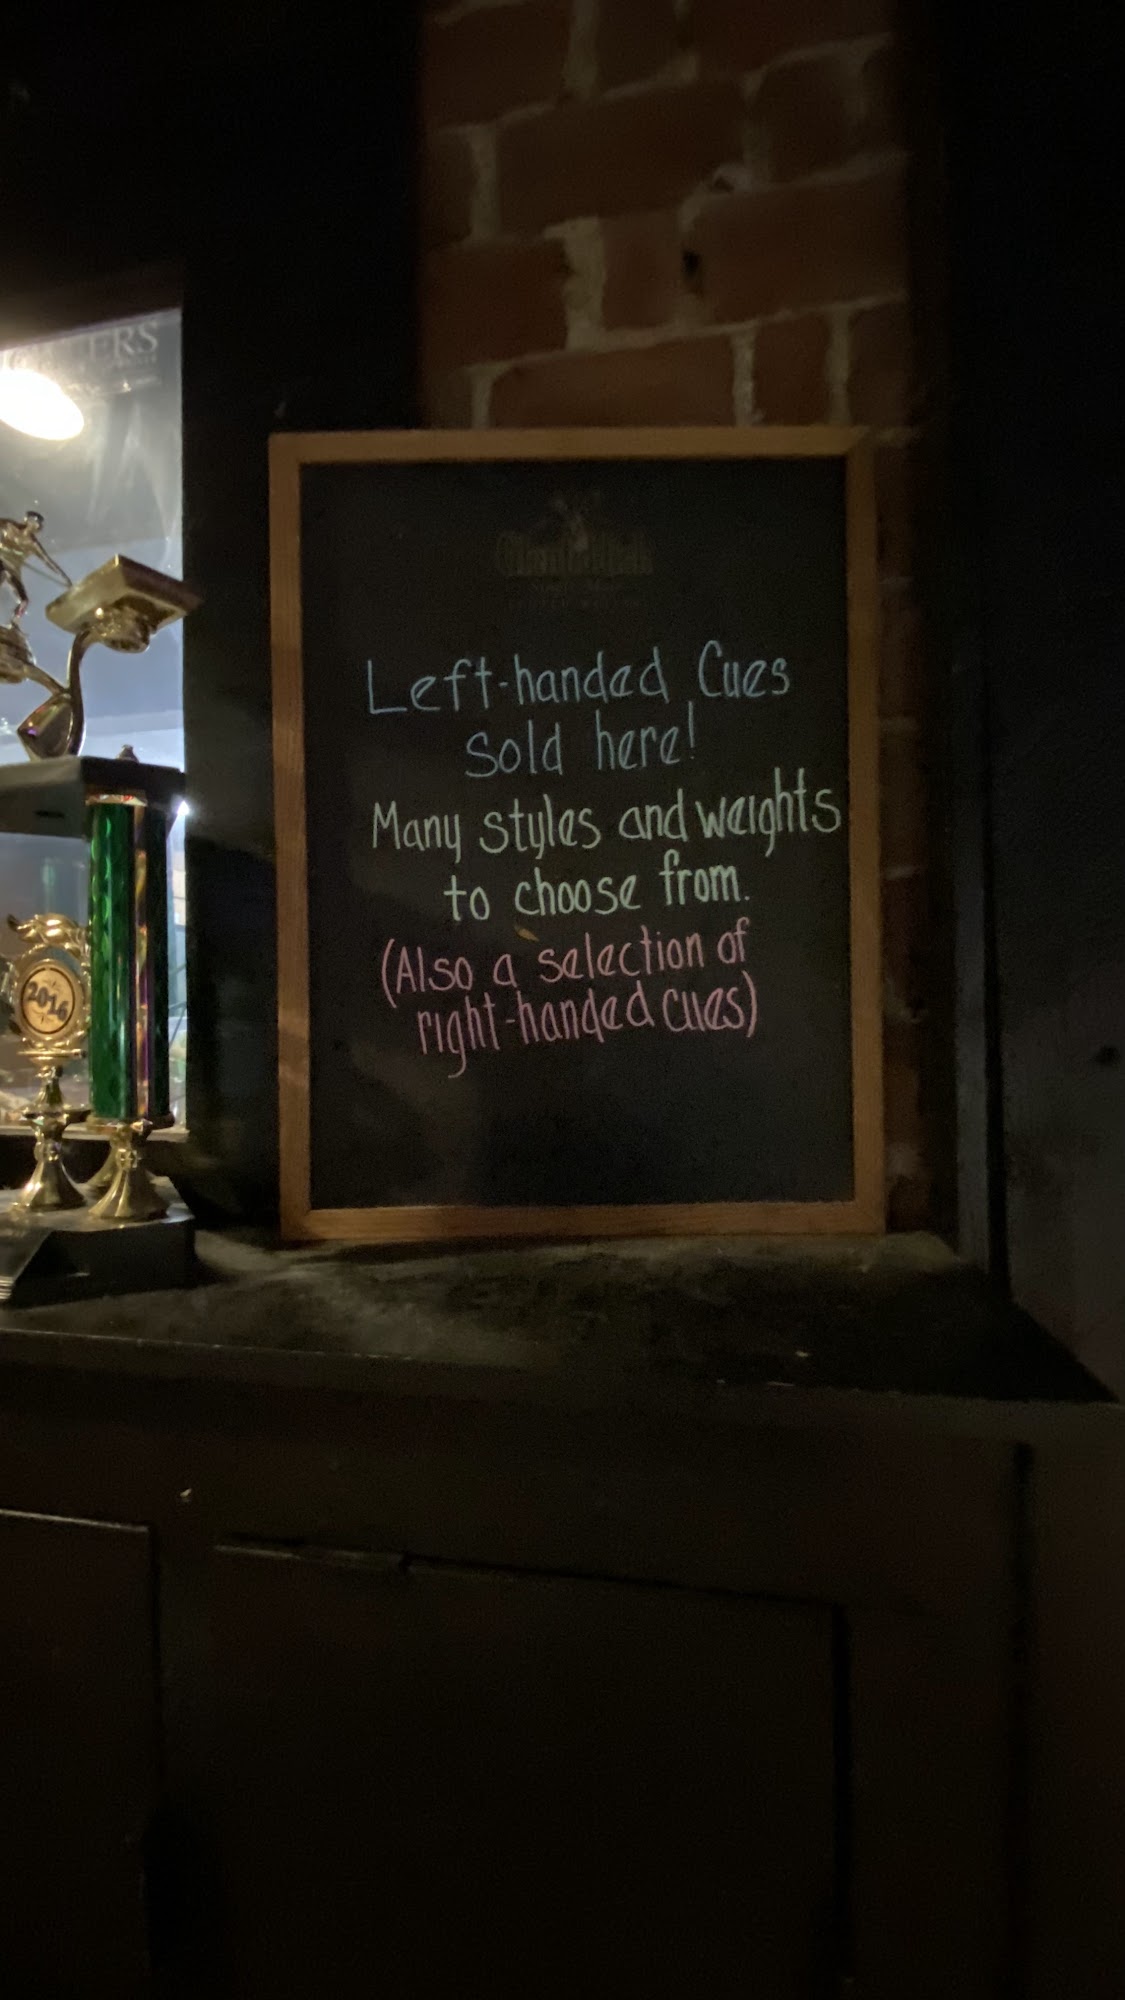 Left-handed Cues
sold here!
Many styles and weights
to choose from.
(Also a selection of
right-handed cues)
2016